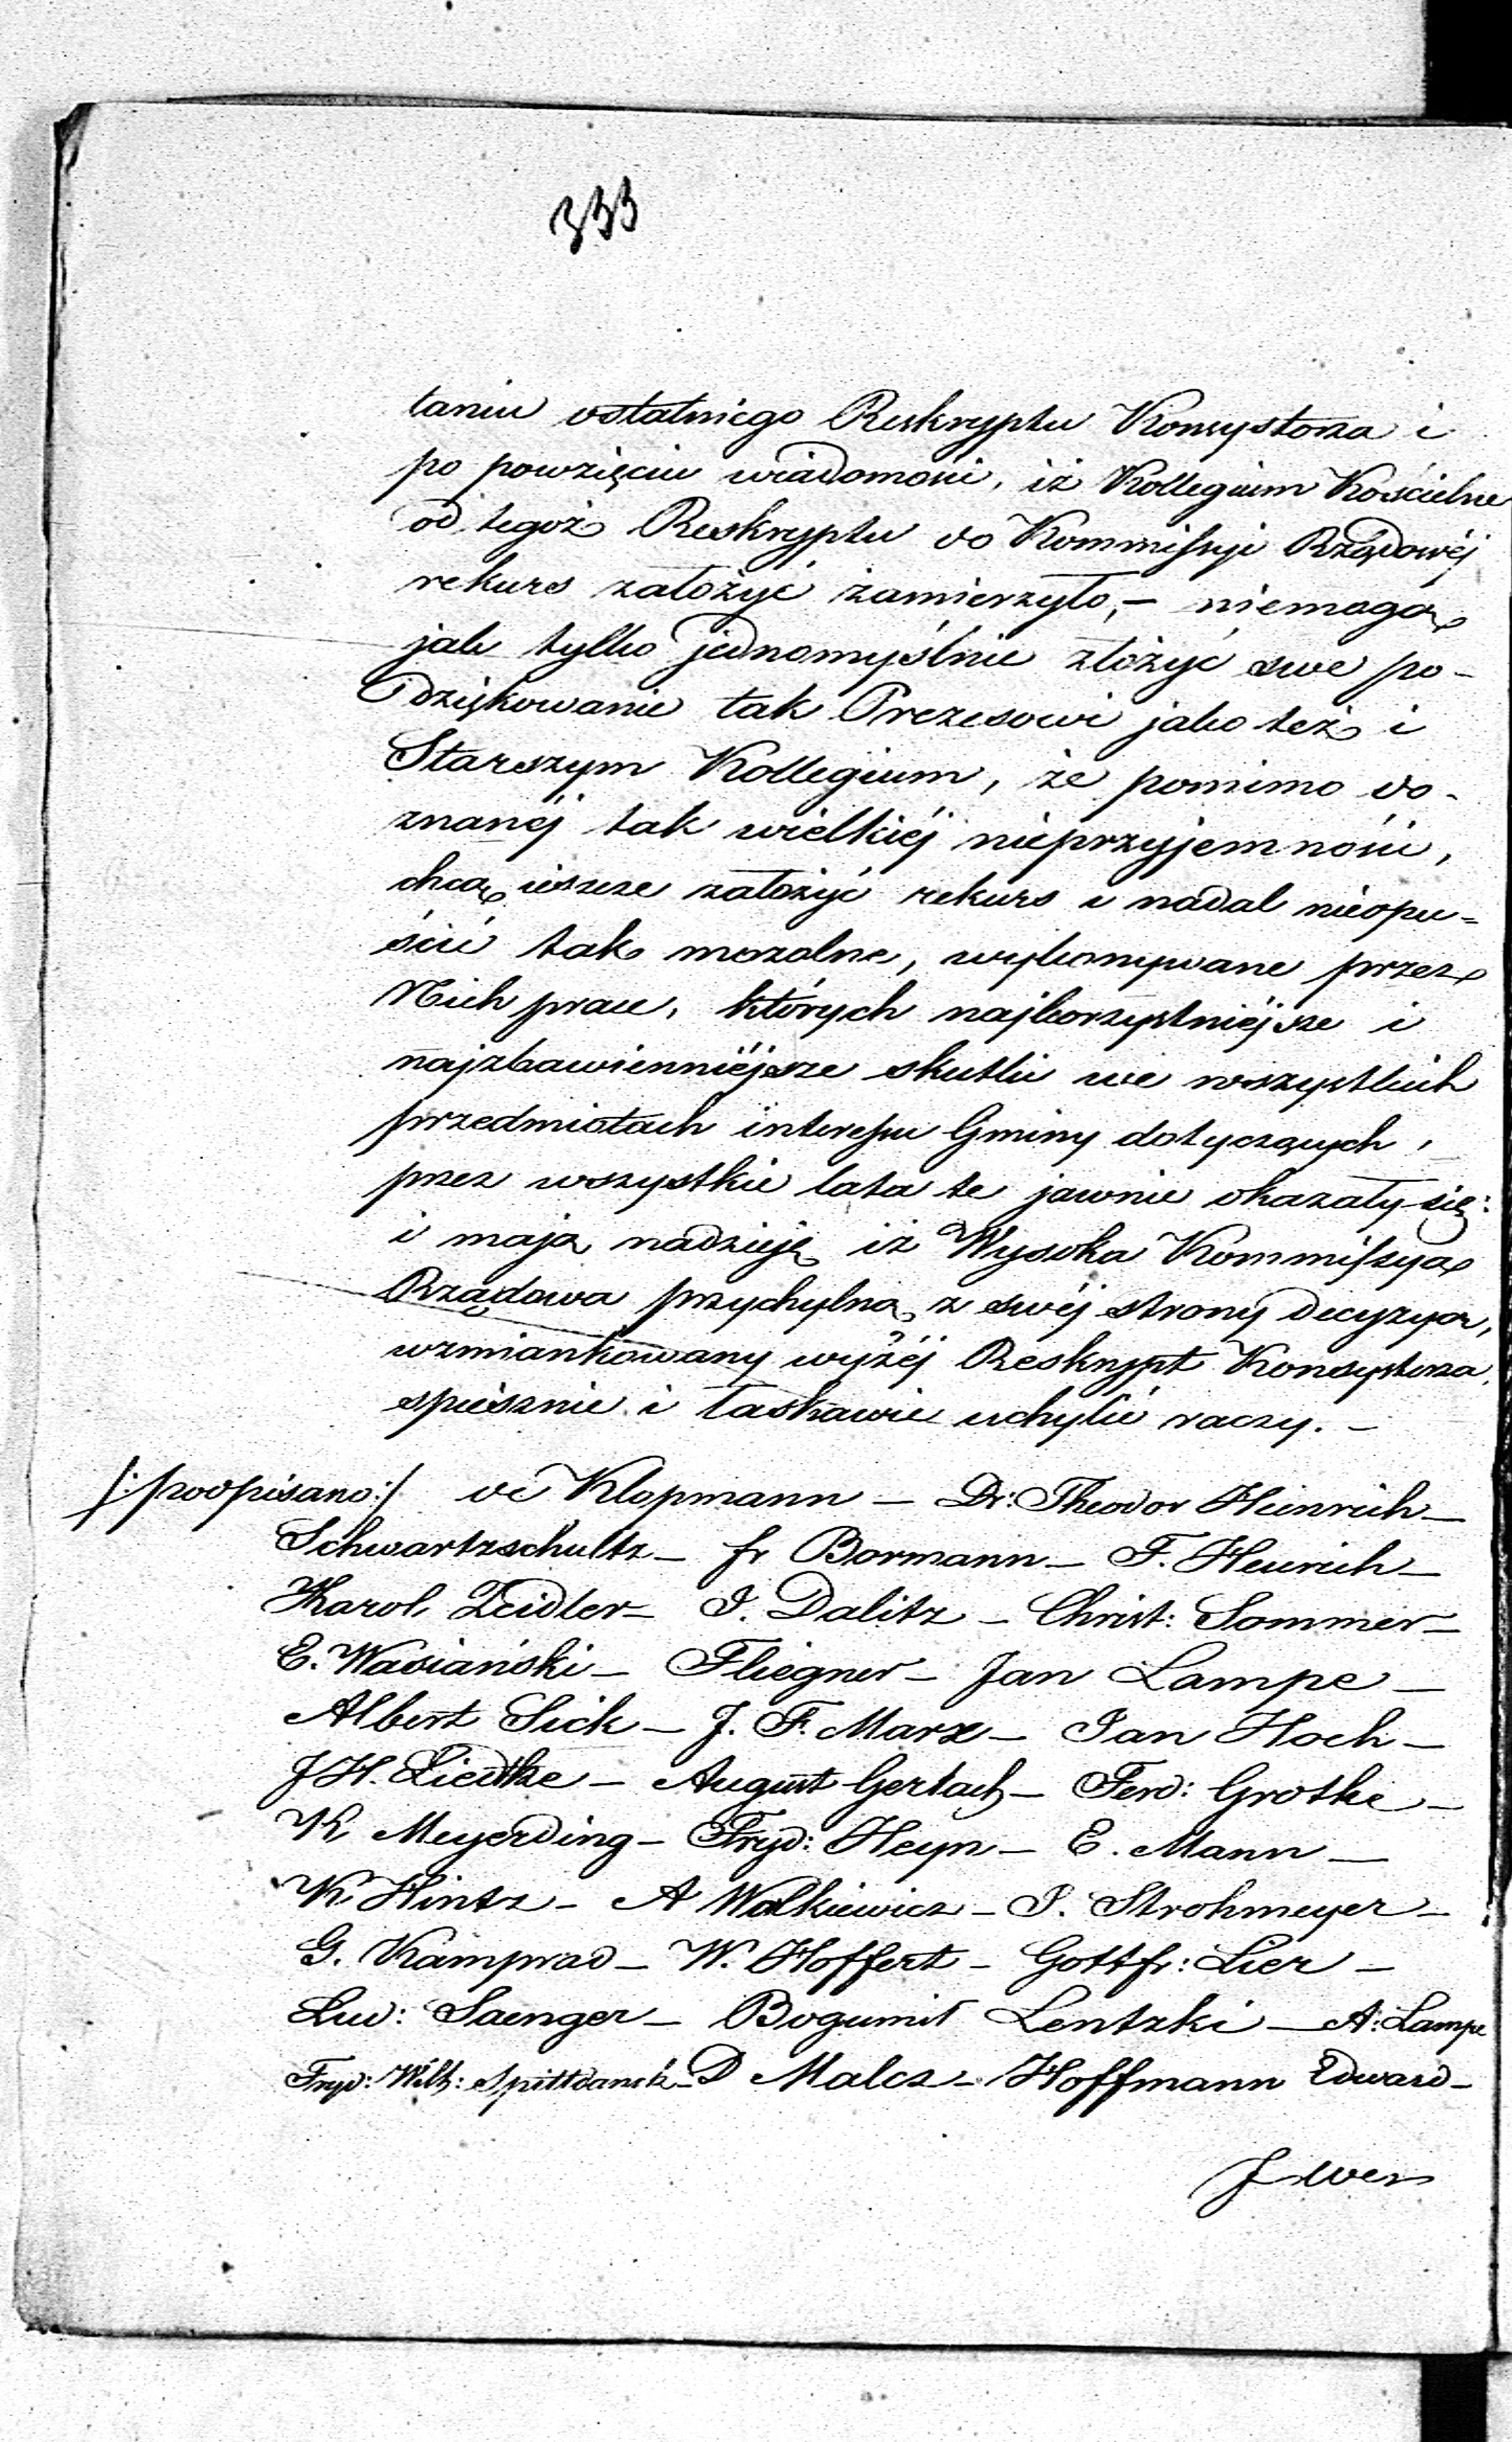 333
taniu ostatniego Reskryptu Konsystorza i
po powzięciu wiadomości, iż Kollegium Kościelne
od tegoż Reskryptu do Kommissyi Rządowéj
rekurs założyć zamierzyło, – niemogą
jak tylko jednomyślnie złożyć swe po-
dziękowanie tak Prezesowi jako też i
Starszym Kollegium, że pomimo do-
znanéj tak wielkiéj nieprzyjemności,
chcą ieszcze założyć rekurs i nadal nieopu=
ścić tak mozolne, wykonywane przez
Nich prace, których najkorzystniéjsze i
najzbawienniéjsze skutki we wszystkich
przedmiotach interessu Gminy dotyczących,
przez wszystkie lata te jawnie okazały się:
i mają nadzieję iż Wysoka Kommissya
Rządowa przychylną z swéj strony decyzyą,
wzmiankowany wyżéj Reskrypt Konsystorza,
spiesznie i łaskawie uchylić raczy. –
/: podpisano :/ de Klopmann – Dr: Theodor Heinrich –
Schwartzschultz – fr Bormann – F. Heurich –
Karol Zeidler – J. Dalitz – Christ: Sommer –
E. Wasiański – Fliegner – Jan Lampe –
Albert Sick – J. F. Marx – Jan Hoch –
J H. Liedtke – August Gerlach – Ferd: Grothe –
K Meyerding – Fryd: Heyn – E. Mann –
K Hintz – A Walkiewicz – J. Strohmeyer –
G. Kamprad – W. Hoffert – Gottfr: Lier –
Lud: Saenger – Bogumił Lentzki – A: Lampe
Fryd: Wilh: – D Malcz – Hoffmann Edward –